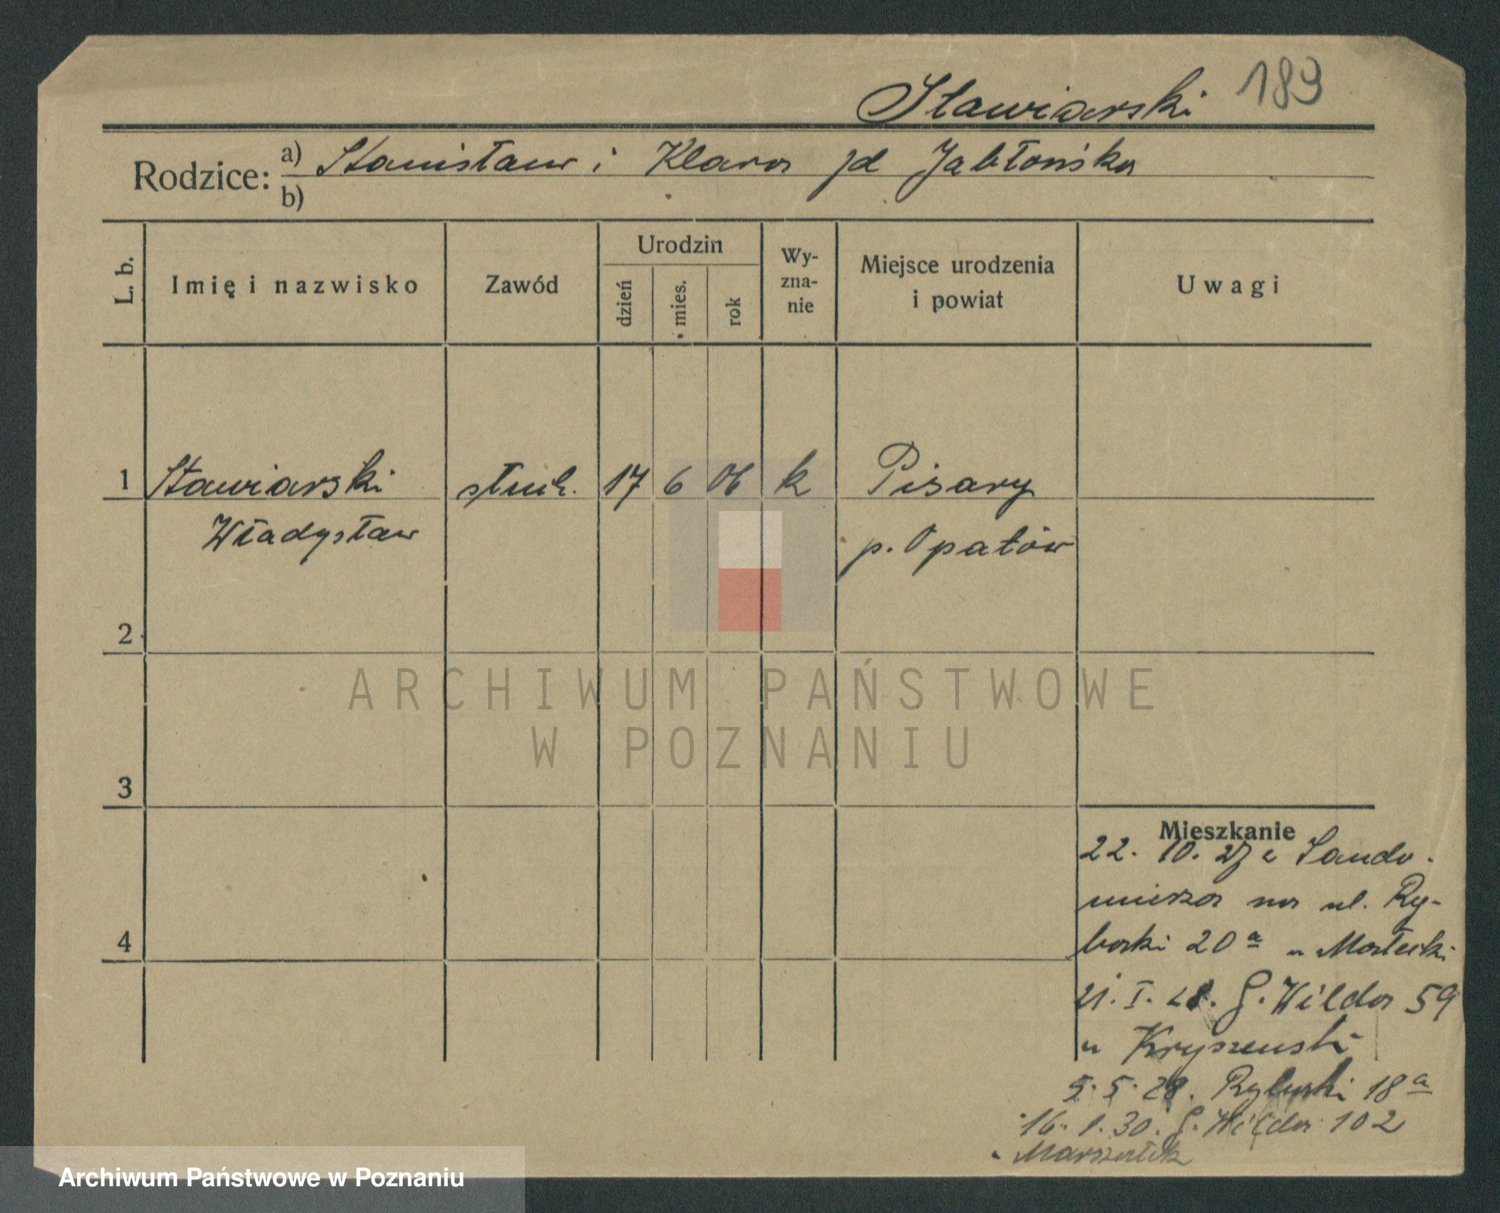 Stawiarski 189
Rodzice: a) Stanisław i Klara zd Jabłońska
b)
L. b.
Imię i nazwisko
Zawód
Urodzin
dzień
mies.
rok
Wy-
zna-
nie
Miejsce urodzenia
i powiat
Uwagi
1 Stawiarski stud. 17 6 06 k Pisary
Władysław p. Opatów
2
3
4
ARCHIWUM PAŃSTWOWE
W POZNANIU
Mieszkanie
22. 10. 27 z Sando-
mierza na ul. Ry-
baki 20 a u Małecki
21. I. 28. G. Wilda 59
u Kryszewski
5. 5. 28. Rybaki 18 a
16. 1. 30. G. Wilda 102
u Marszałek
Archiwum Państwowe w Poznaniu